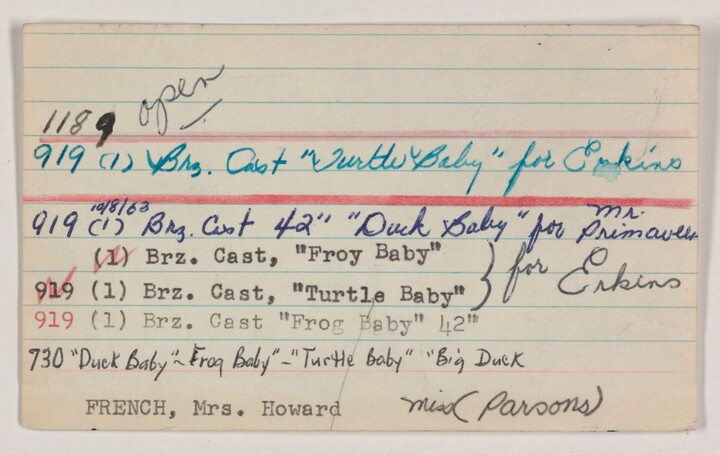 1189 open
919 (1) Brz. Cast "Turtle Baby" for Erkins
10/8/63
919 (1) Brz. Cast 42" "Duck Baby" for Mr. Primavera
(1) Brz. Cast, "Froy Baby"
919 (1) Brz. Cast, "Turtle Baby" } for Erkins
919 (1) Brz. Cast "Frog Baby" 42"
730 "Duck Baby" - Frog Baby" - "Turtle Baby" "Big Duck
FRENCH, Mrs. Howard Miss (Parsons)